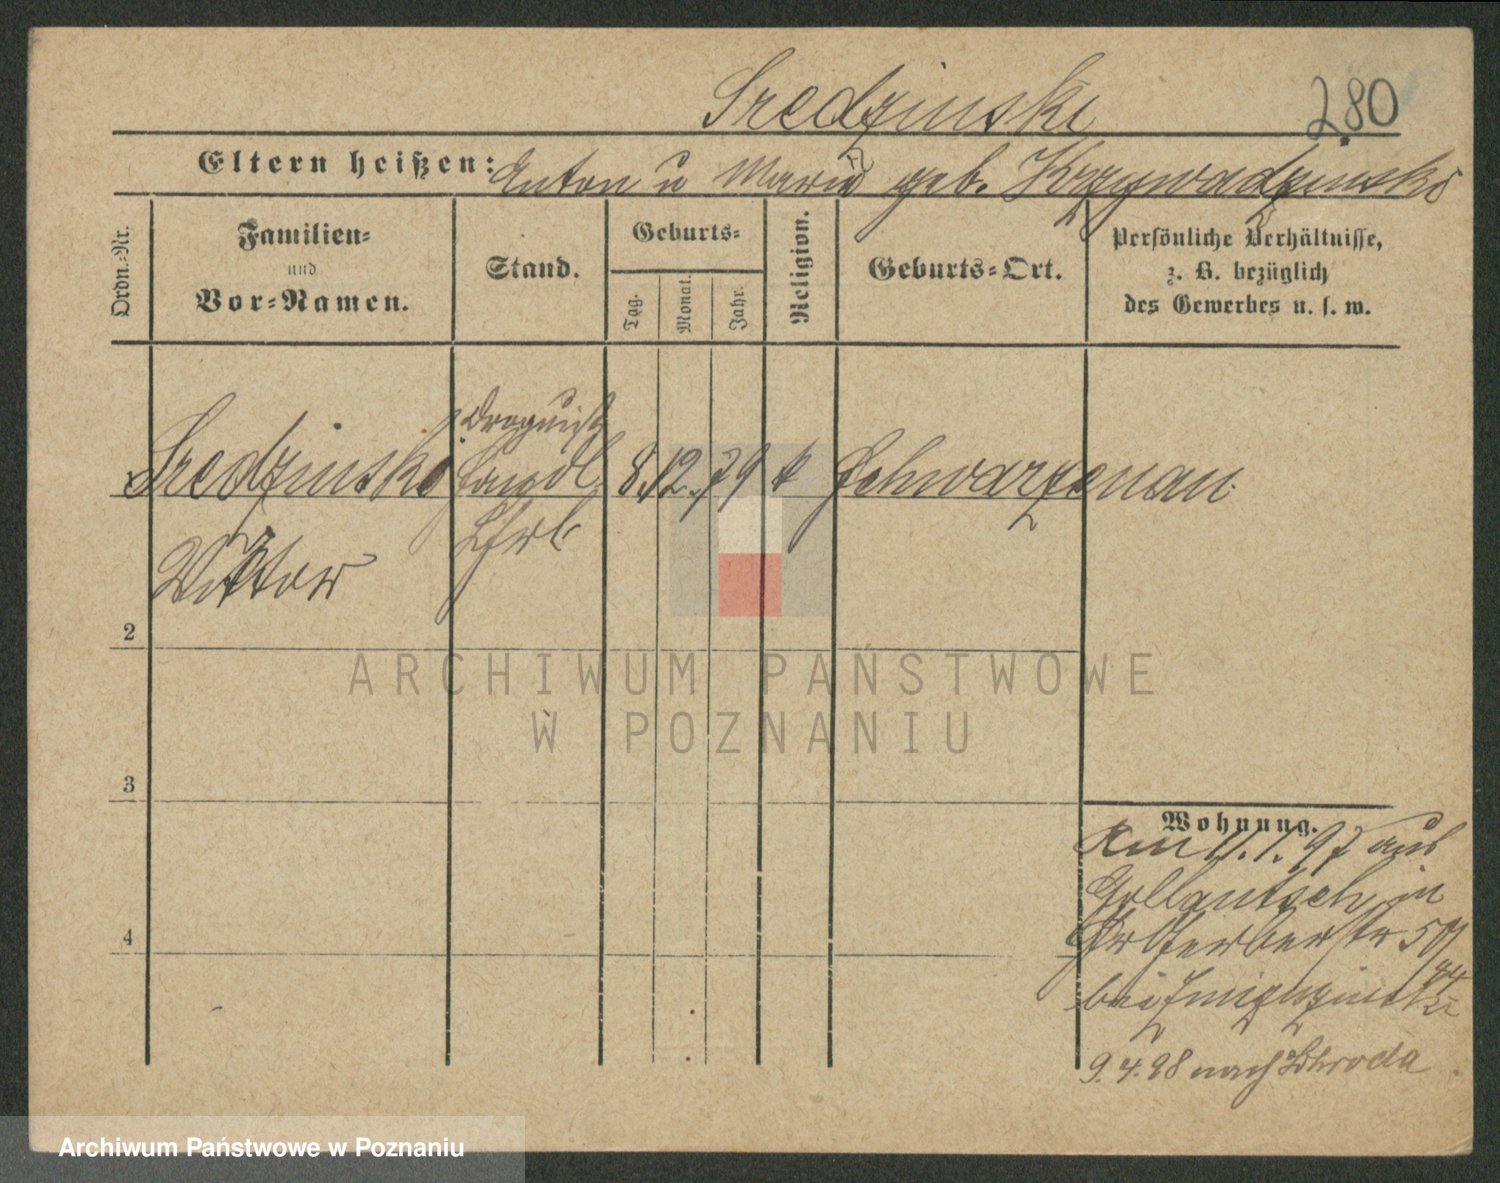 Sredzinski 280
Eltern heißen: Anton u Maria geb. Krzywadzinski
Ordn.-Nr.
Familien-
und
Vor-Namen.
Stand.
Geburts-
Tag.
Monat.
Jahr.
Religion.
Geburts-Ort.
Persönliche Verhältnisse,
z. B. bezüglich
des Gewerbes u. s. w.
Droguist
Sredzinski Handl. 8. 12. 79 k Schwarzenau
Lehrl
Viktor
2
3
4
Wohnung.
Am 11.1.97 aus
Gollantsch in
Gr Gerberstr 50
bei
9.4.98 nach Schroda
ARCHIWUM PAŃSTWOWE
W POZNANIU
Archiwum Państwowe w Poznaniu